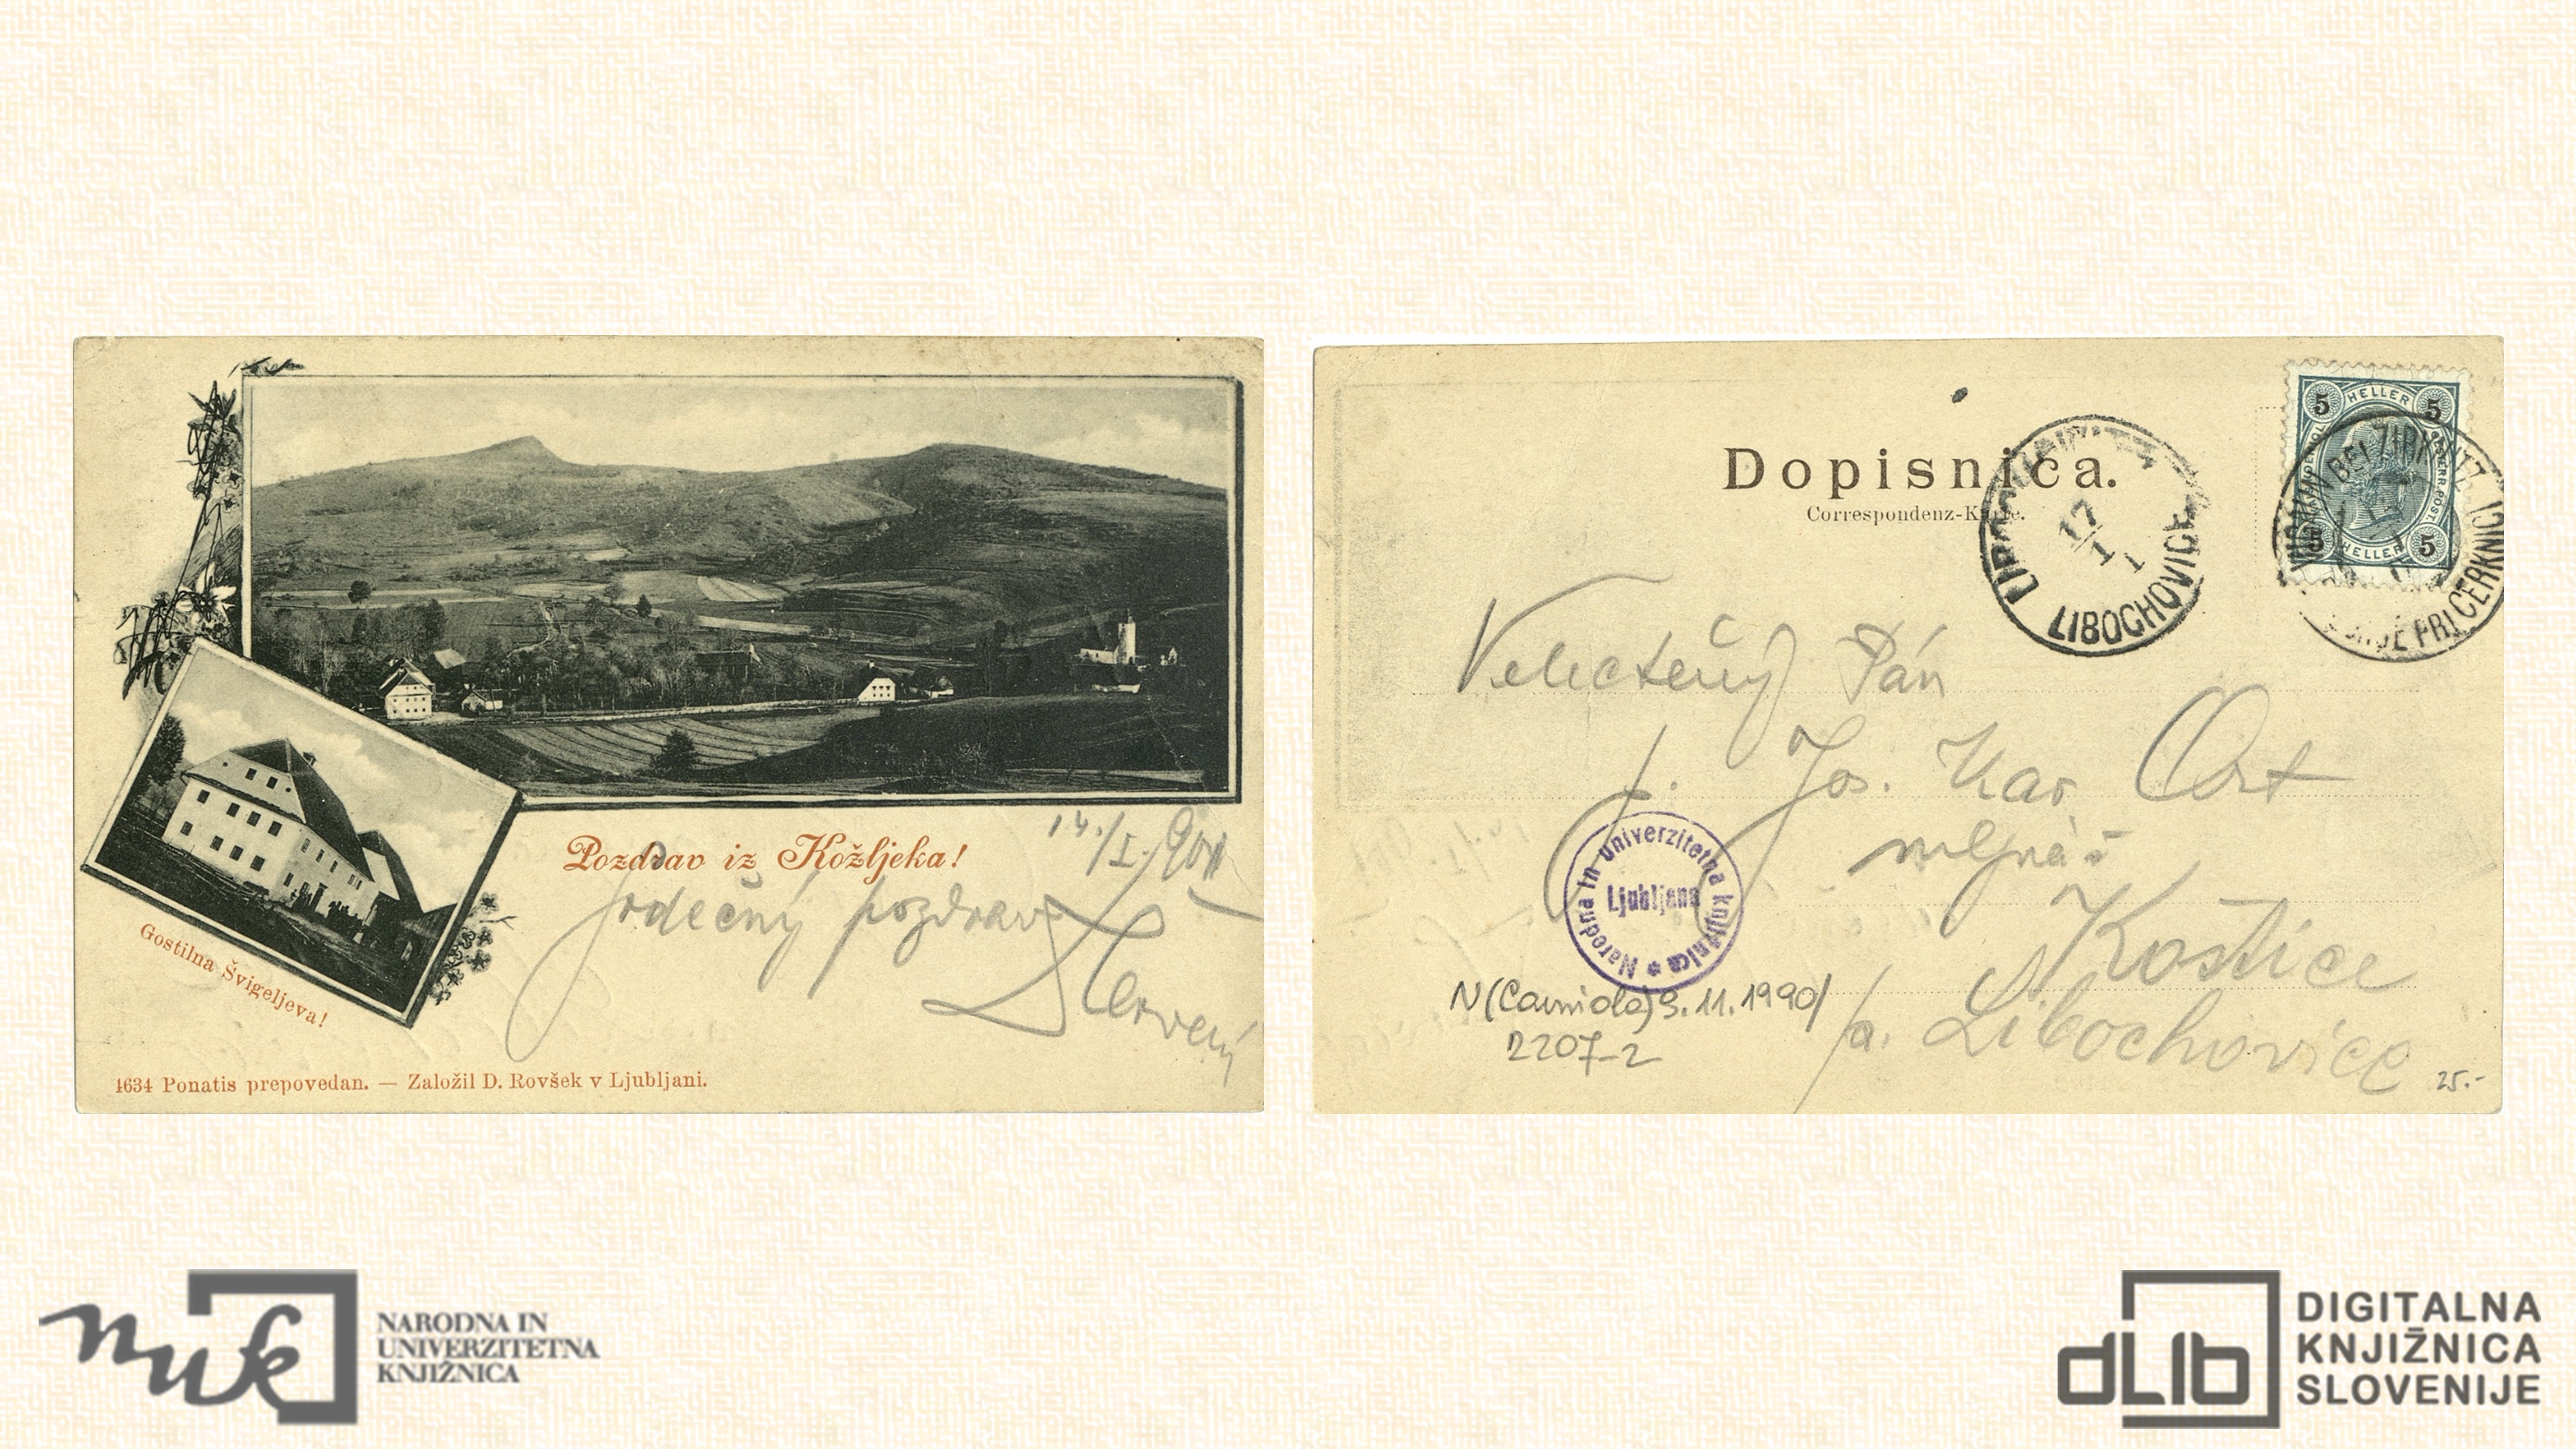 Pozdrav iz Kožljeka!
14./I. 901
Srdečný pozdrav
Červený
Gostilna Švigeljeva!
1634 Ponatis prepovedan. — Založil D. Rovšek v Ljubljani.
Dopisnica.
Correspondenz-Karte.
LIBOCHOVICE
17
1
1
5 HELLER 5
5 HELLER 5
BEI ZIRKNITZ
PRI CERKNICI
Velectěný Pán
p. Jos. Kar. Ort
mlynář
Kostice
p. Libochovice
Narodna in univerzitetna knjižnica
Ljubljana
N (Carniola) 9.11.1990/
2207-2
25.-
nuk
NARODNA IN
UNIVERZITETNA
KNJIŽNICA
dLib
DIGITALNA
KNJIŽNICA
SLOVENIJE